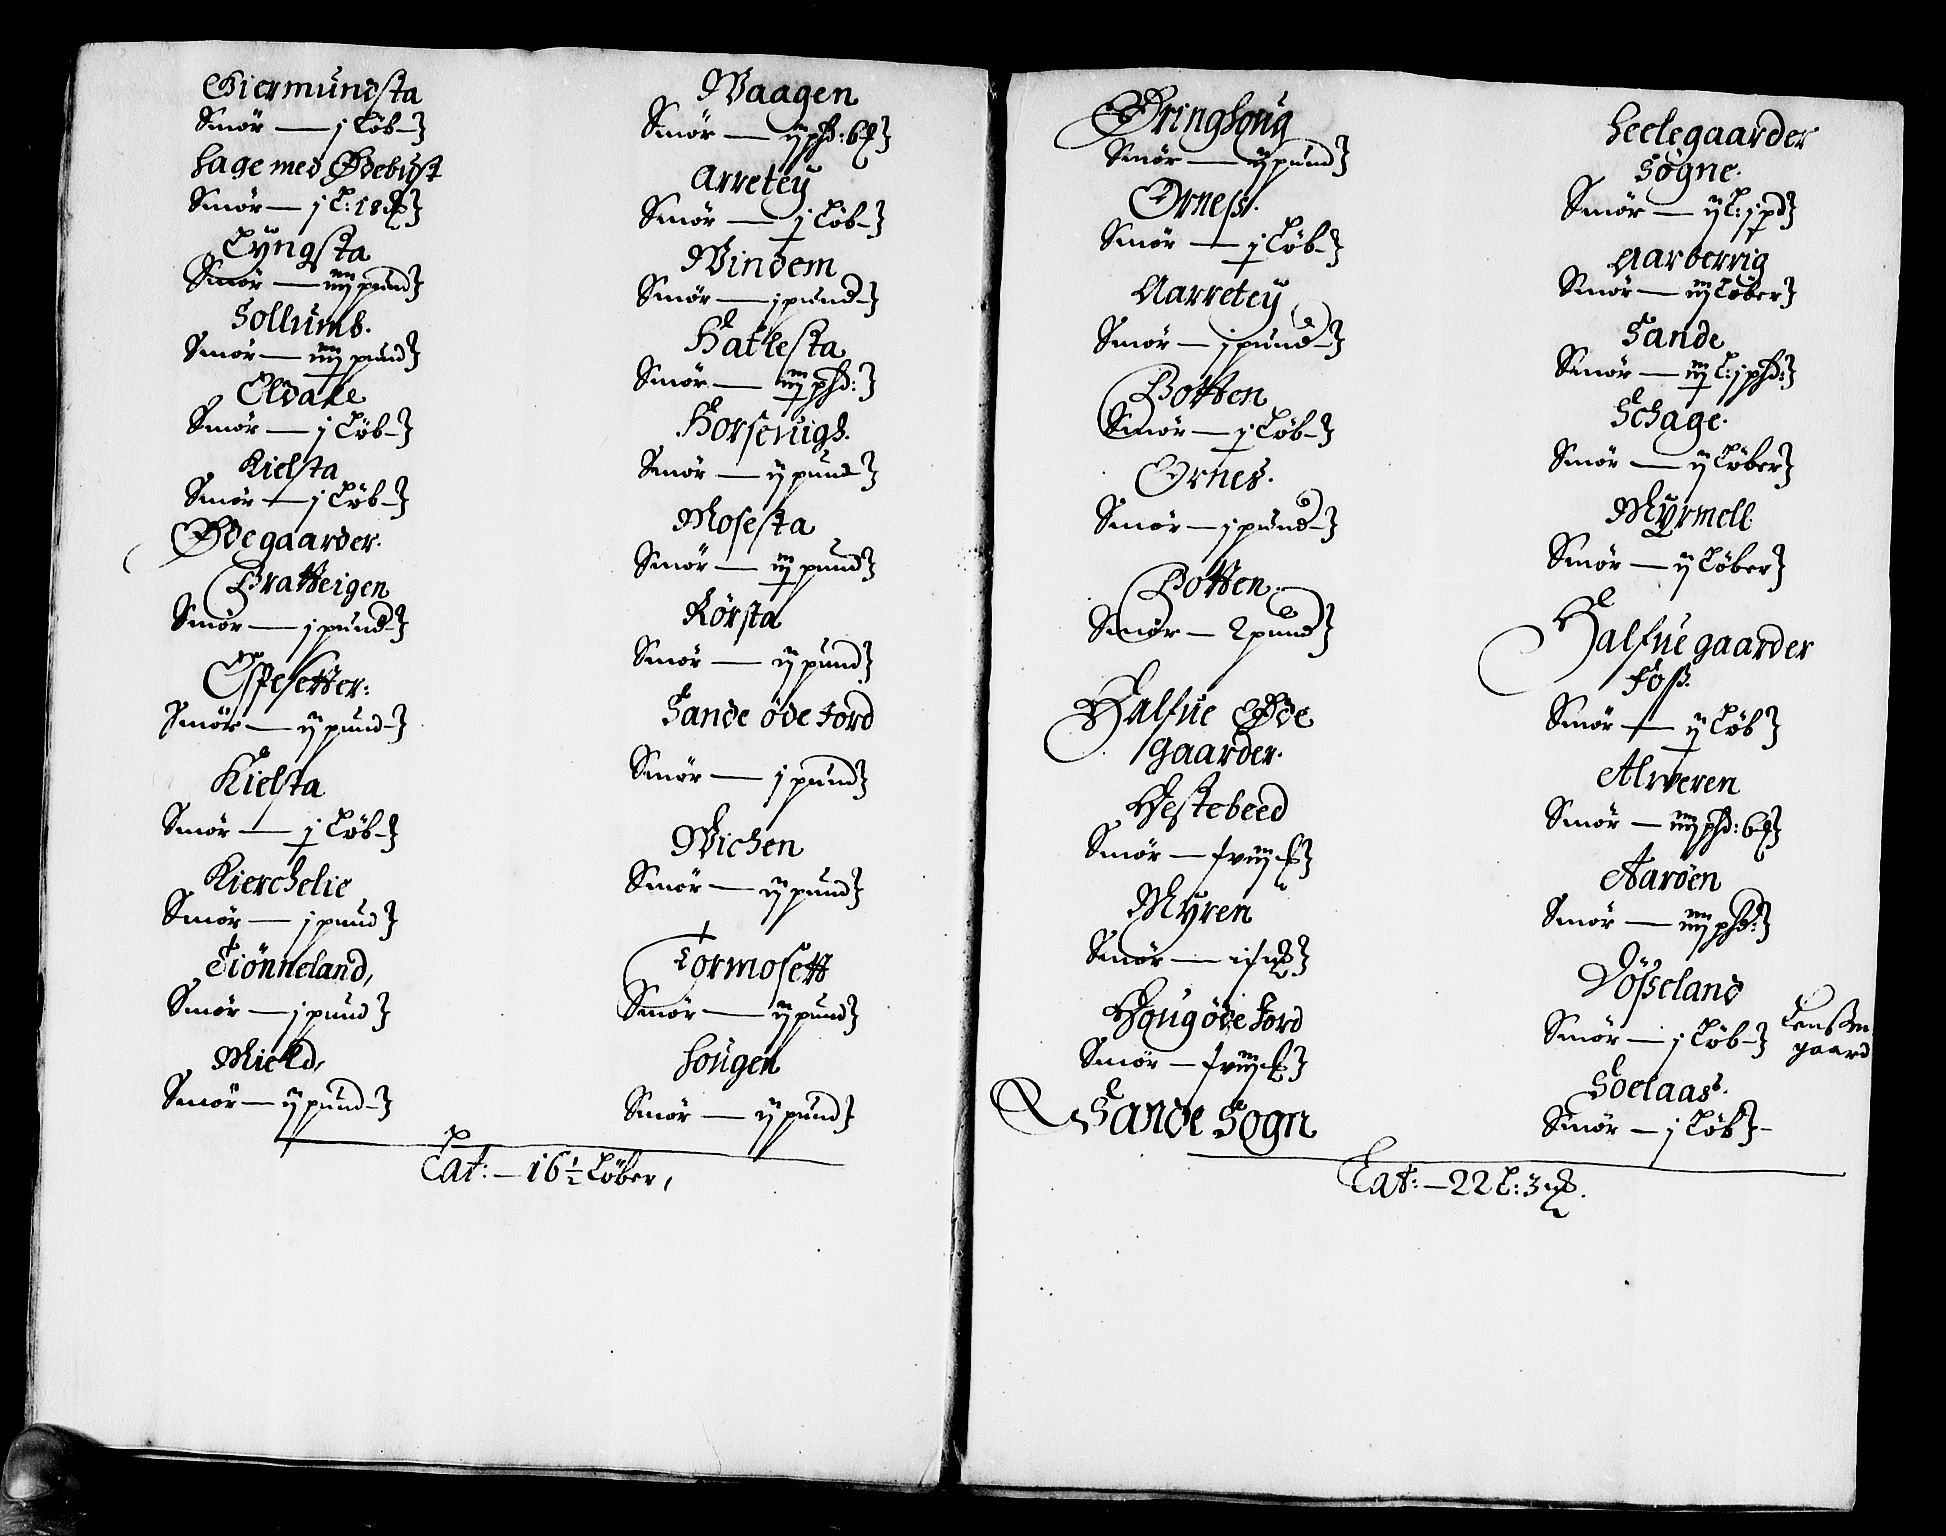 Giermundsta
Smör — j Löb
Hage med Ødebust
Smör — j L: 18
Lyngsta
Smör — iij pund
Sollumb.
Smör — iij pund
Oldale
Smör — j Löb
Kielsta
Smör — j Löb
Ødegaarder.
Bratteigen
Smör — j pund
Espesetter:
Smör — ij pund
Kielsta
Smör — j Löb
Kierchelie
Smör — j pund
Tiönneland,
Smör — j pund
Mield,
Smör — ij pund
Waagen
Smör — ij pd: 6
Arretey
Smör — j Löb
Windem
Smör — j pund
Hatlesta
Smör — iij pd:
Horseuigh.
Smör — ij pund
Mosesta
Smör — iij pund
Rörsta
Smör — ij pund
Sande öde Jord
Smör — j pund
Wichen
Smör — ij pund
Tormosett
Smör — ij pund
Hougen
Smör — ij pund
Lat: — 16 ½ Löber,
Bringhoug
Smör — ij pund
Orness.
Smör — j Löb
Aarretey
Smör — j pund
Botten
Smör — j Löb
Ornes.
Smör — j pund
Botten.
Smör — 2 pund
Halfue Øde
gaarder.
Hestebeed
Smör —
Myren
Smör —
Houg öde Jord
Smör —
Sande Sogn
Heelegaarder
Sogne.
Smör — ij L: j pd
Aarberrig
Smör — iij Löber
Sande
Smör — iij L: j pd:
Schage.
Smör — ij Löber
Myrmell
Smör — ij Löber
Halfue gaarder
Foss.
Smör — ij Löb
Alweren
Smör — iiij pd: 6
Aaröen
Smör — iiij pd:
Dösseland
Smör — j Löb
Lensm
gaard
Soelaas.
Smör — j Löb
Lat: — 22 L: 3